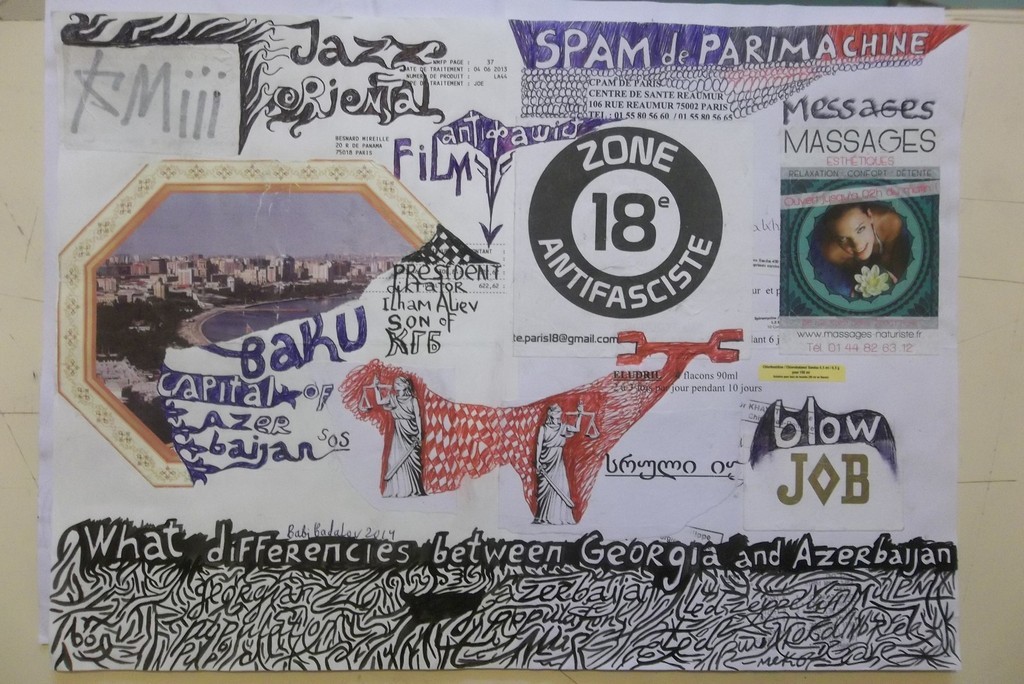 Jazz
ORiENTAL
AMiii
NMFP PAGE : 37
DATE DE TRAITEMENT : 04 06 2013
NUMERO DE PRODUIT : LA44
DE TRAITEMENT : JOE
BERNARD MIREILLE
20 R DE PANAMA
75018 PARIS
SPAM de PARIMACHINE
CPAM DE PARIS
CENTRE DE SANTE REAUMUR
106 RUE REAUMUR 75002 PARIS
TEL : 01 55 80 56 60 / 01 55 80 56 65
FiLM
ZONE
18e
ANTIFASCISTE
te.paris18@gmail.com
Messages
MASSAGES
ESTHÉTIQUES
RELAXATION · CONFORT · DÉTENTE
www.massages-naturiste.fr
Tél. 01 44 82 63 12
622,62
PRESIDENT
diktator
Ilham Aliev
SON of
КГБ
BAKU
CAPITAL OF
AZER
baijan SOS
ELUDRIL 4 flacons 90ml
2 à 3 fois par jour pendant 10 jours
სრული
blow
JOB
Babi Badalov 2014
What differencies between Georgia and Azerbaijan
georgian
azerbaijan
Led Zeppelin
population
population